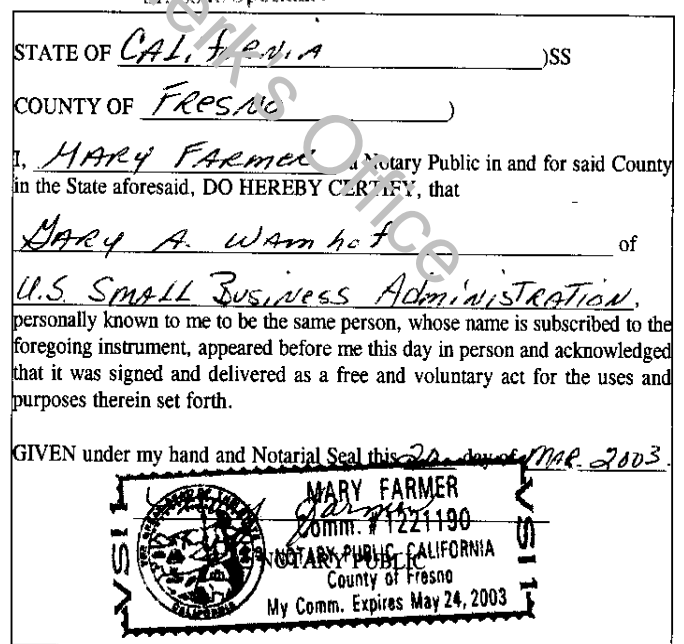 erk's Office
STATE OF CALifORNiA )SS
COUNTY OF FResNo )
I, MARY FARMER a Notary Public in and for said County
in the State aforesaid, DO HEREBY CERTIFY, that
GARY A. WAmhof of
U.S. SMALL BusiNess AdmiNisTRATioN,
personally known to me to be the same person, whose name is subscribed to the
foregoing instrument, appeared before me this day in person and acknowledged
that it was signed and delivered as a free and voluntary act for the uses and
purposes therein set forth.
GIVEN under my hand and Notarial Seal this 20 day of MAR. 2003.
MARY FARMER
Comm. # 1221190
NOTARY PUBLIC CALIFORNIA
NOTARY PUBLIC
County of Fresno
My Comm. Expires May 24, 2003
VSI 1
VSI 1
CALIFORNIA